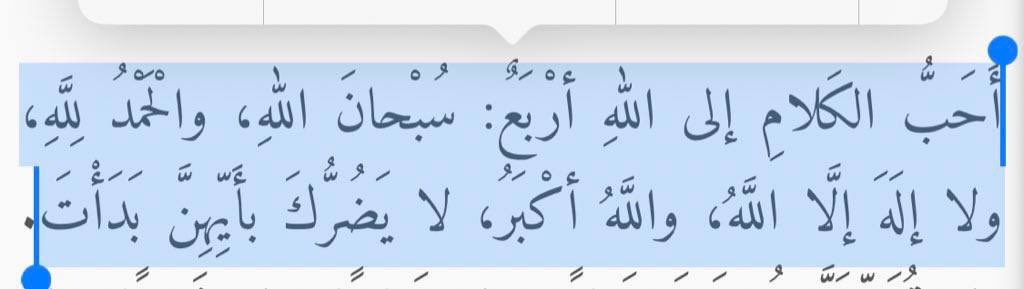 أَحَبُّ الكَلامِ إلى اللهِ أرْبَعٌ: سُبْحانَ اللهِ، والْحَمْدُ لِلَّهِ،
ولا إلَهَ إلَّا اللَّهُ، واللَّهُ أكْبَرُ، لا يَضُرُّكَ بأَيِّهِنَّ بَدَأْتَ.